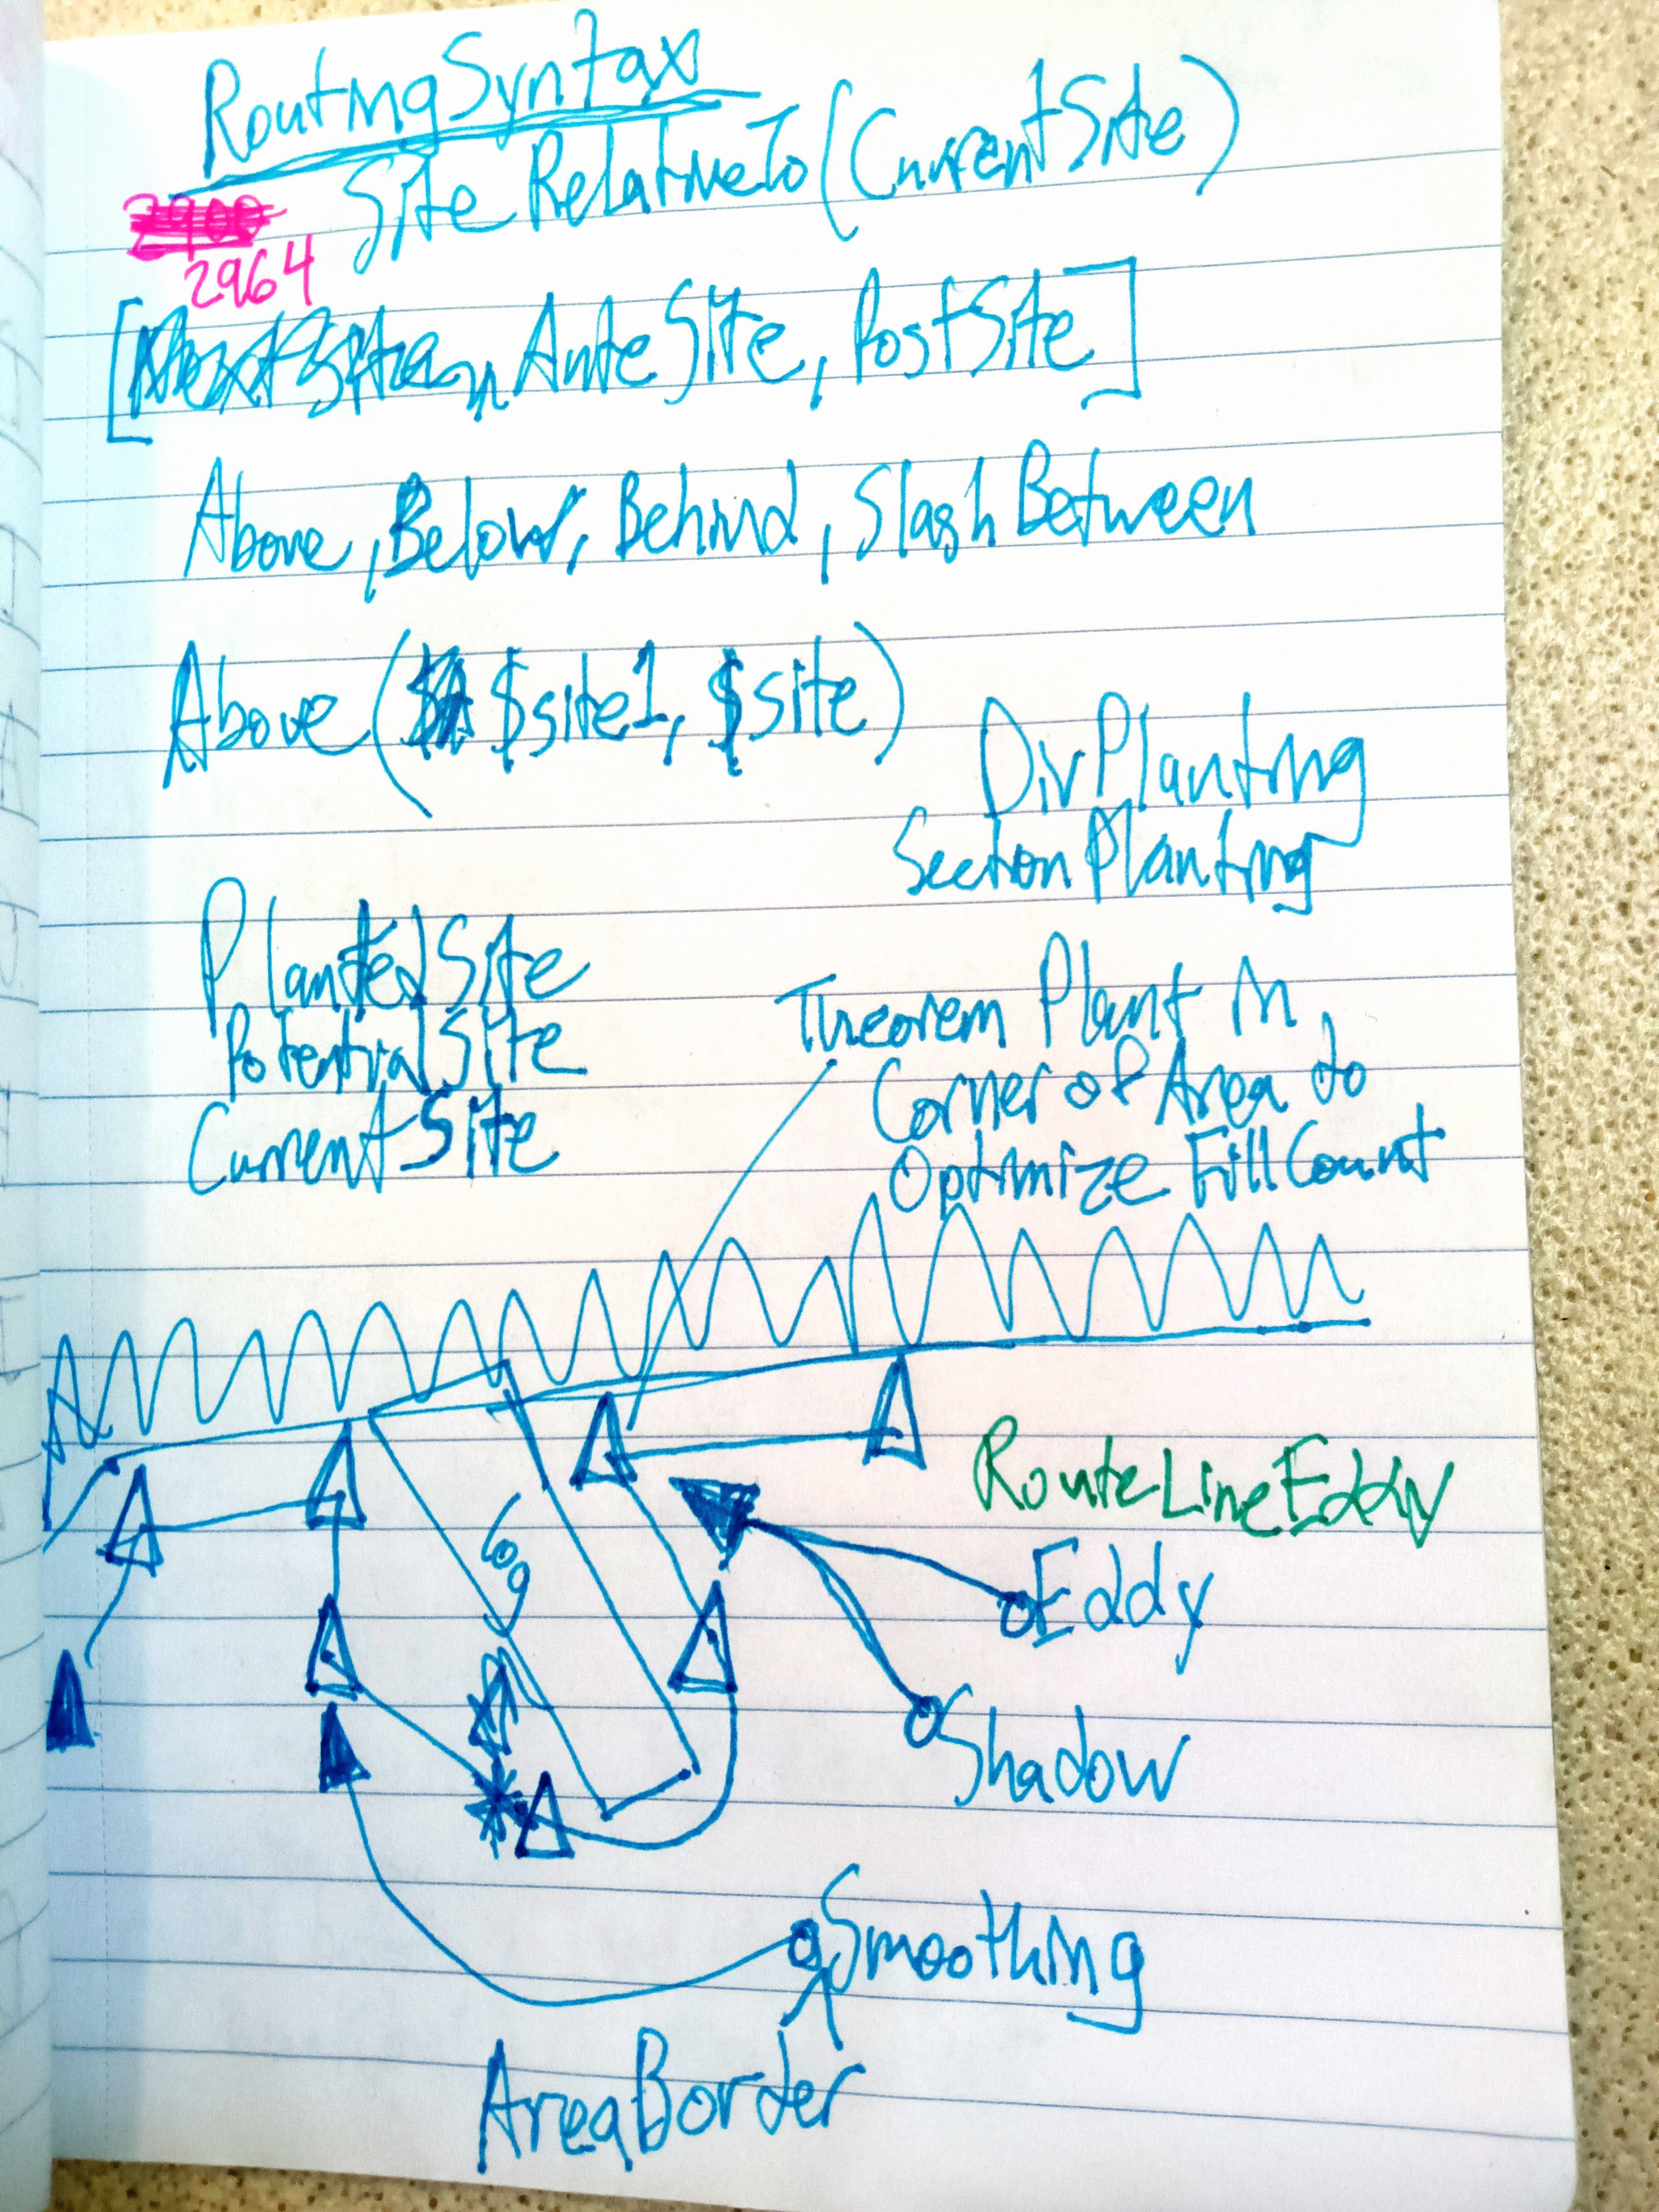 RoutingSyntax
Site RelativeTo (CurrentSite)
2964
[AnteSite, PostSite]
Above, Below, Behind, Slash Between
Above ($site1, $site)
DivPlanting
Section Planting
PlantedSite
PotentialSite
CurrentSite
Theorem Plant in
Corner of Area to
Optimize FillCount
RouteLineEddy
Log
Eddy
Shadow
Smoothing
AreaBorder